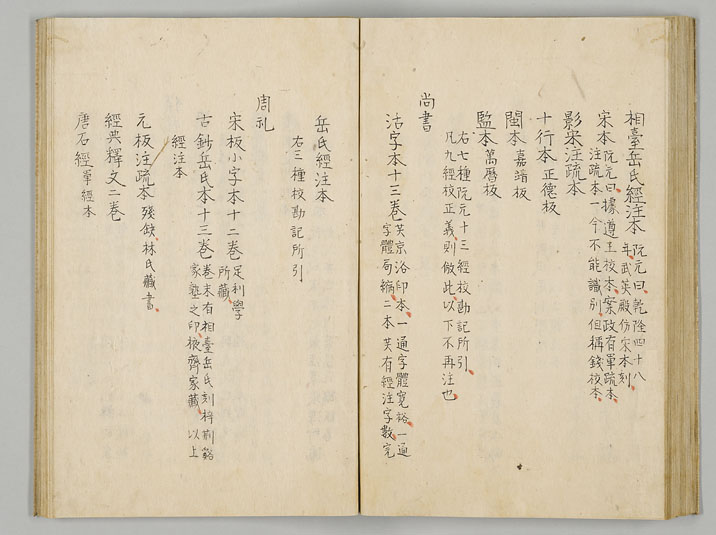 相臺岳氏經注本 阮元曰乾隆四十八
年武英殿仿宋本刻
宋本 阮元曰據遵王校本案政有單疏本
注疏本一今不能識別但稱錢校本
影宋注疏本
十行本 正德板
閩本 嘉靖板
監本 萬曆板
右七種阮元十三經校勘記所引
凡九經校正義則倣此以下不再注也
尚書
活字本十三卷 英京洛印本一通字體寬裕一通
字體局縮二本英有經注字數完
岳氏經注本
右三種校勘記所引
周礼
宋板小字本十二卷 足利學
所藏
古鈔岳氏本十三卷 卷末有相臺岳氏刻梓荊谿
家塾之印掖齋家藏以上
經注本
元板注疏本 殘缺林氏藏書
經典釋文二卷
唐石經 單經本